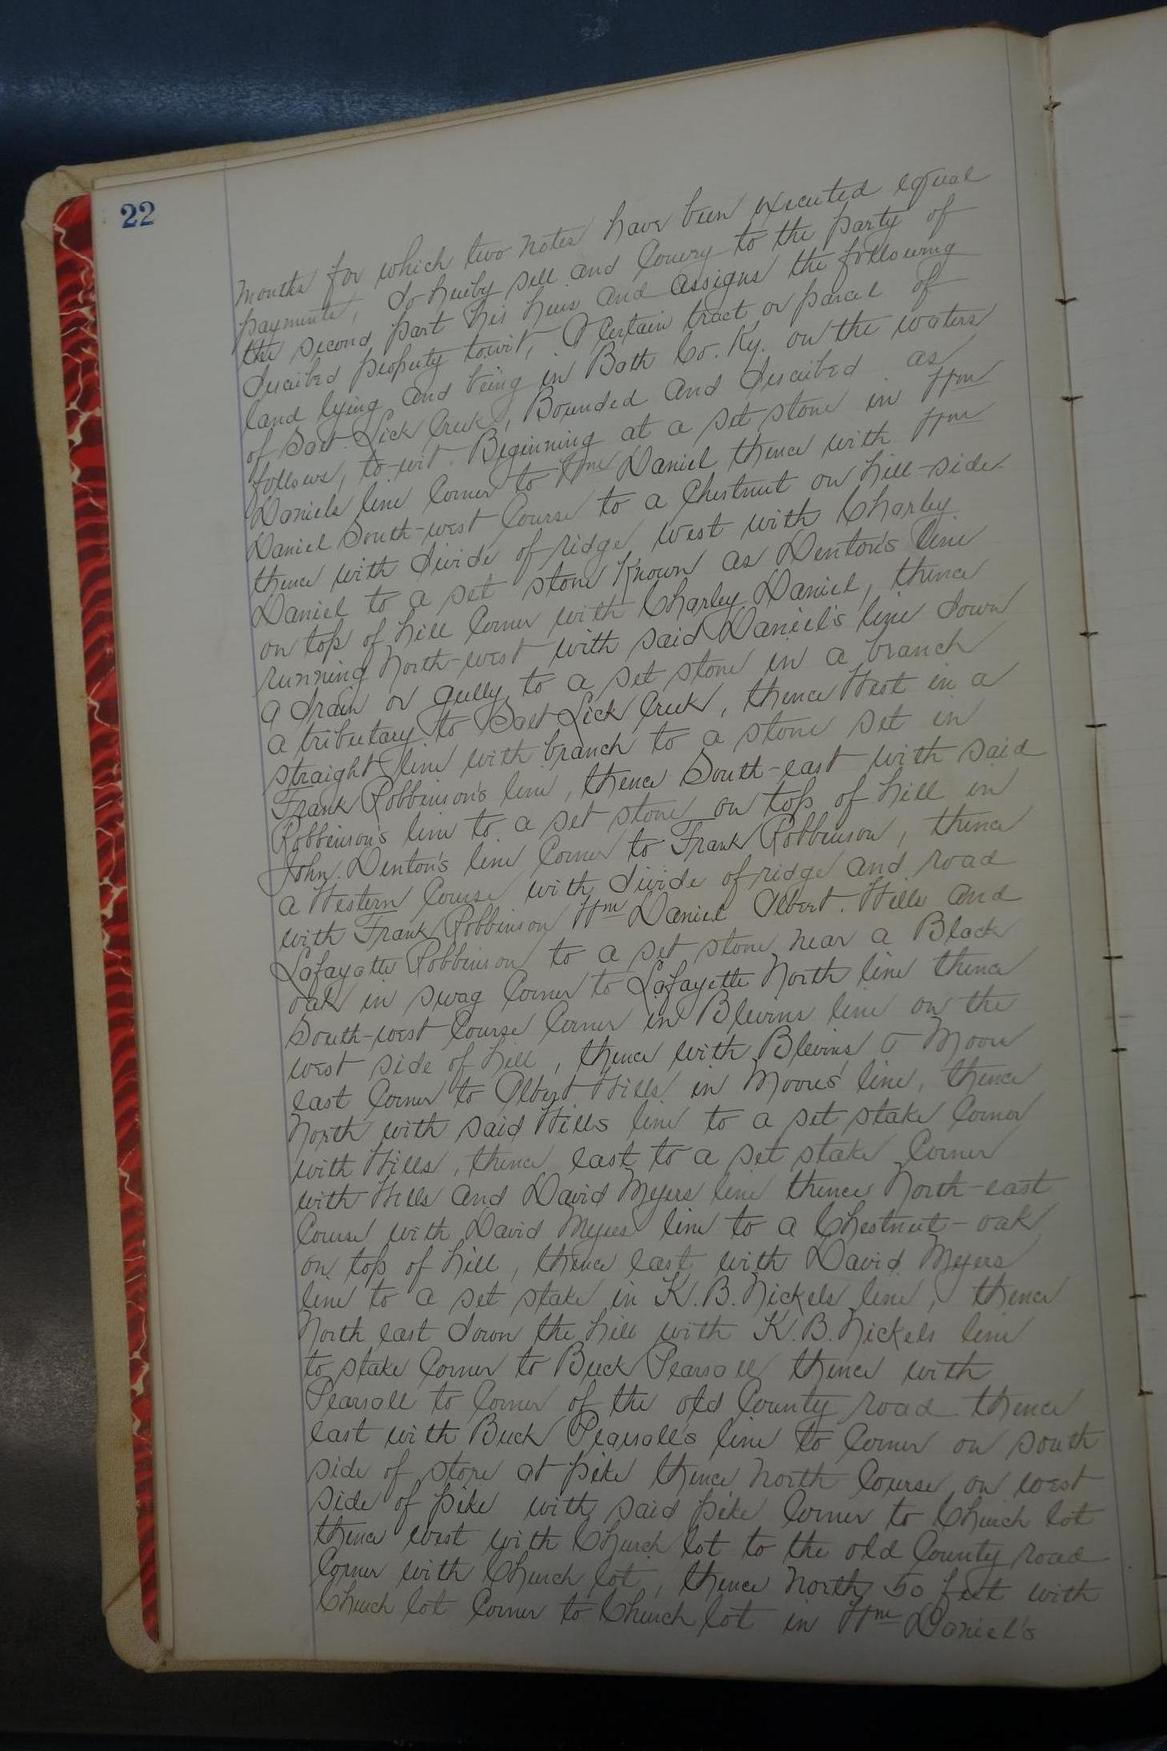 22
months for which two notes have been executed equal
payments, do hereby sell and convey to the party of
the second part his heirs and assigns the following
described property towit, A certain tract or parcel of
land lying and being in Bath Co. Ky. on the waters
of Salt Lick Creek, Bounded and described as
follows, to-wit. Beginning at a set stone in Wm
Daniels line Corner to Wm Daniel thence with Wm
Daniel South-west Course to a Chestnut on hill-side
thence with divide of ridge west with Charley
Daniel to a set stone known as Denton's line
on top of hill Corner with Charley Daniel, thence
running North-west with said Daniel's line down
a drain or gully to a set stone in a branch
a tributary to Salt Lick Creek, thence West in a
straight line with branch to a stone set in
Frank Robbinson's line, thence South-east with said
Robbinson's line to a set stone on top of hill in
John Denton's line Corner to Frank Robbinson, thence
a Western Course with divide of ridge and road
with Frank Robbinson Wm Daniel Albert. Hills and
Lafayette Robbinson to a set stone near a Black
oak in swag Corner to Lafayette North line thence
South-west Course Corner in Blevins line on the
west side of hill, thence with Blevins & Moore
east Corner to Albert Hills in Moore's line, thence
North with said Hills line to a set stake Corner
with Hills, thence east to a set stake Corner
with Hills and David Myers line thence North-east
Course with David Myers line to a Chestnut-oak
on top of hill, thence east with David Myers
line to a set stake in K. B. Nickels line, thence
North east down the hill with K. B. Nickels line
to stake Corner to Buck Pearsall thence with
Pearsall to Corner of the old County road thence
east with Buck Pearsall's line to Corner on south
side of store at pike thence North Course on west
side of pike with said pike Corner to Church lot
thence west with Church lot to the old County road
Corner with Church lot, thence North 50 feet with
Church lot Corner to Church lot in Wm Daniel's